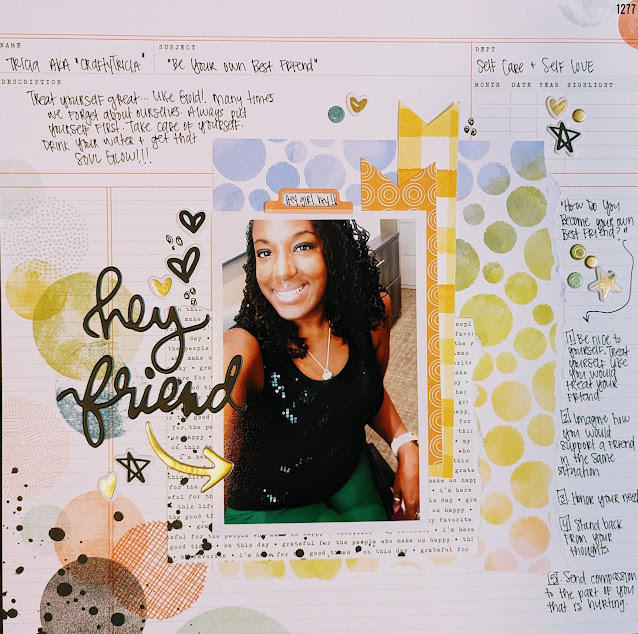 1277
NAME
SUBJECT
DEPT.
TRICIA AKA "CRAFTYTRICIA"
"BE YOUR OWN BEST FRIEND"
SELF CARE + SELF LOVE
DESCRIPTION
MONTH DATE YEAR HIGHLIGHT
TREAT YOURSELF GREAT... LIKE GOLD!. MANY TIMES
WE FORGET ABOUT OURSELVES. ALWAYS PUT
YOURSELF FIRST. TAKE CARE OF YOURSELF.
DRINK YOUR WATER + GET THAT
SOUL GLOW!!!
Hey girl hey!!
hey
friend
"HOW DO YOU
BECOME YOUR OWN
BEST FRIEND?"
1 BE NICE TO
YOURSELF. TREAT
YOURSELF LIKE
YOU WOULD
TREAT YOUR
FRIEND
2 IMAGINE HOW
YOU WOULD
SUPPORT A FRIEND
IN THE SAME
SITUATION
3 HONOR YOUR NEED
4 STAND BACK
FROM YOUR
THOUGHTS
5. SEND COMPASSION
TO THE PART OF YOU
THAT IS HURTING.
good times • on this day • grateful for the people who make us happy • thi
favorite • i'm here for • good times • on this day • grateful for